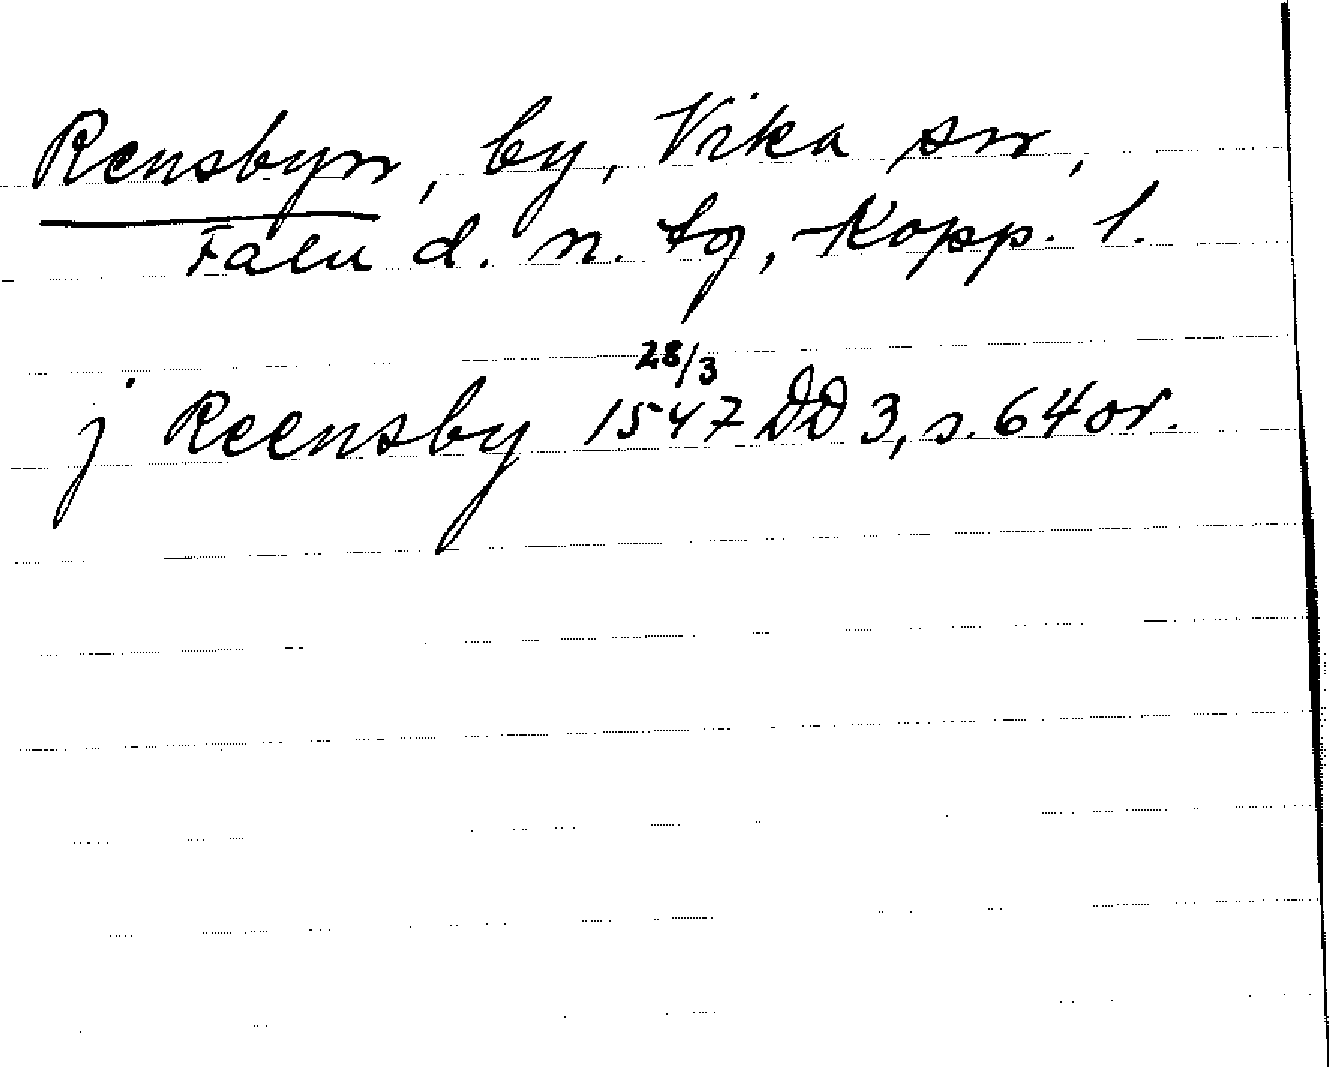 Rensbyn, by, Vika sn,
Falu d. n. tg, Kopp. l.
28/3
j Reensby 1547 DD 3, s. 64 or.